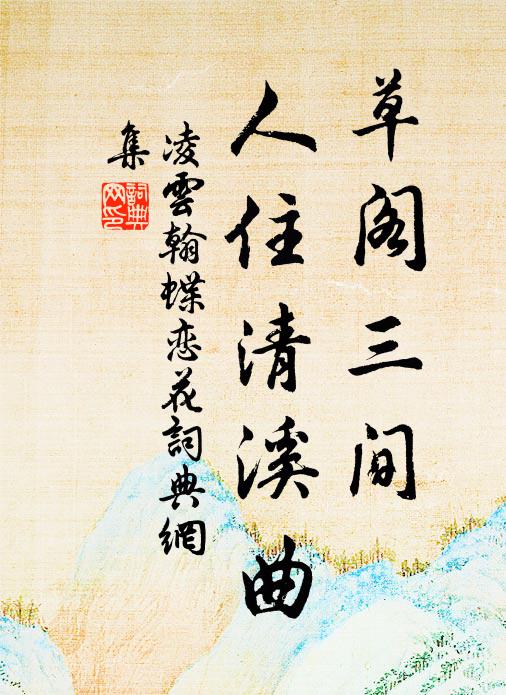 草阁三间
人住清溪曲
凌雲翰蝶恋花词典網
集
詞典
网印